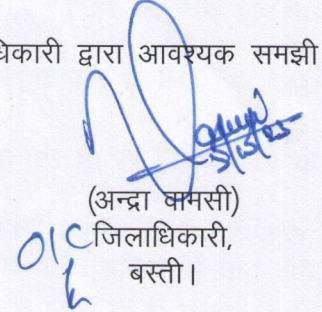 धिकारी द्वारा आवश्यक समझी
(अन्द्रा वामसी)
O/C जिलाधिकारी,
बस्ती।